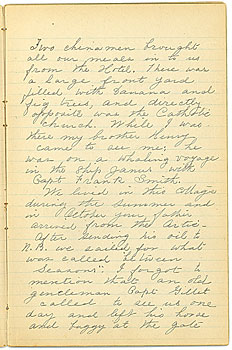 Two chinamen brought
all our meals in to us
from the Hotel. There was
a large front yard
filled with banana and
fig trees, and directly
opposite was the Catholic
Church. While I was
there my brother Henry
came to see me; he
was on a whaling voyage
in the Ship James with
Capt Frank Smith.
We lived in this village
during the summer and
in October your father
arrived from the Arctic
After sending his oil to
N.B. we sailed for what
was called between
Seasons". I forgot to
mention that an old
gentleman Capt Gillet
called to see us one
day and left his horse
and buggy at the gate